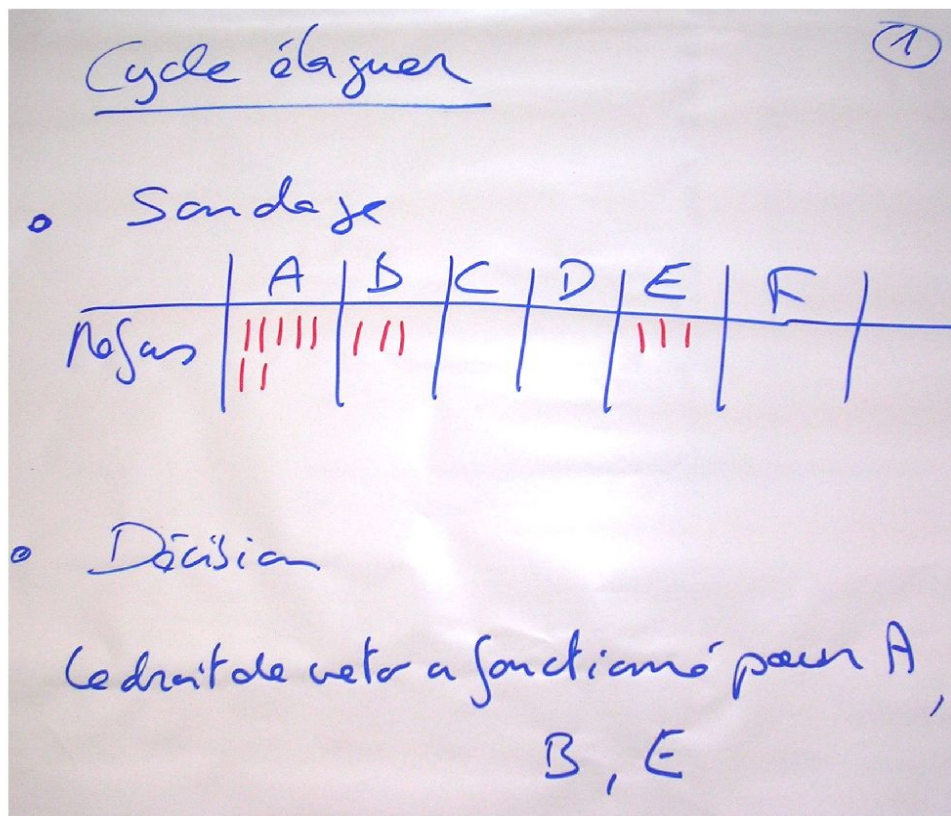 Cycle élaguer
1
• Sondage
A B C D E F
Refus ||||| ||| |||
||
• Décision
Le droit de veto a fonctionné pour A,
B, E